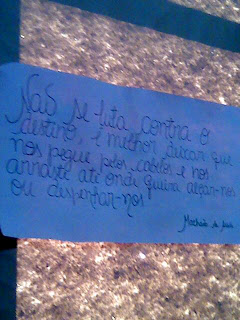 Não se luta contra o
destino, é melhor deixar que
nos pegue pelos cabelos e nos
arraste até onde queira alçar-nos
ou despenhar-nos
Machado de Assis